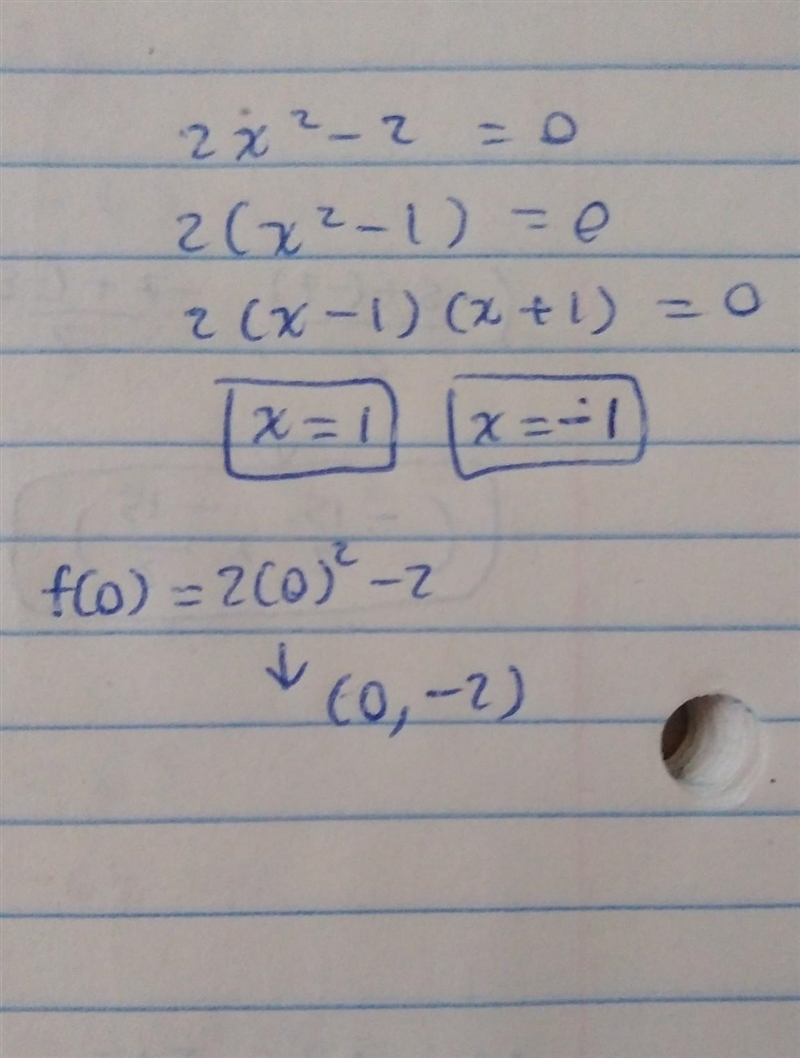 2x² - 2 = 0
2(x² - 1) = 0
2(x - 1)(x + 1) = 0
x = 1 x = -1
f(0) = 2(0)² - 2
↓ (0, -2)